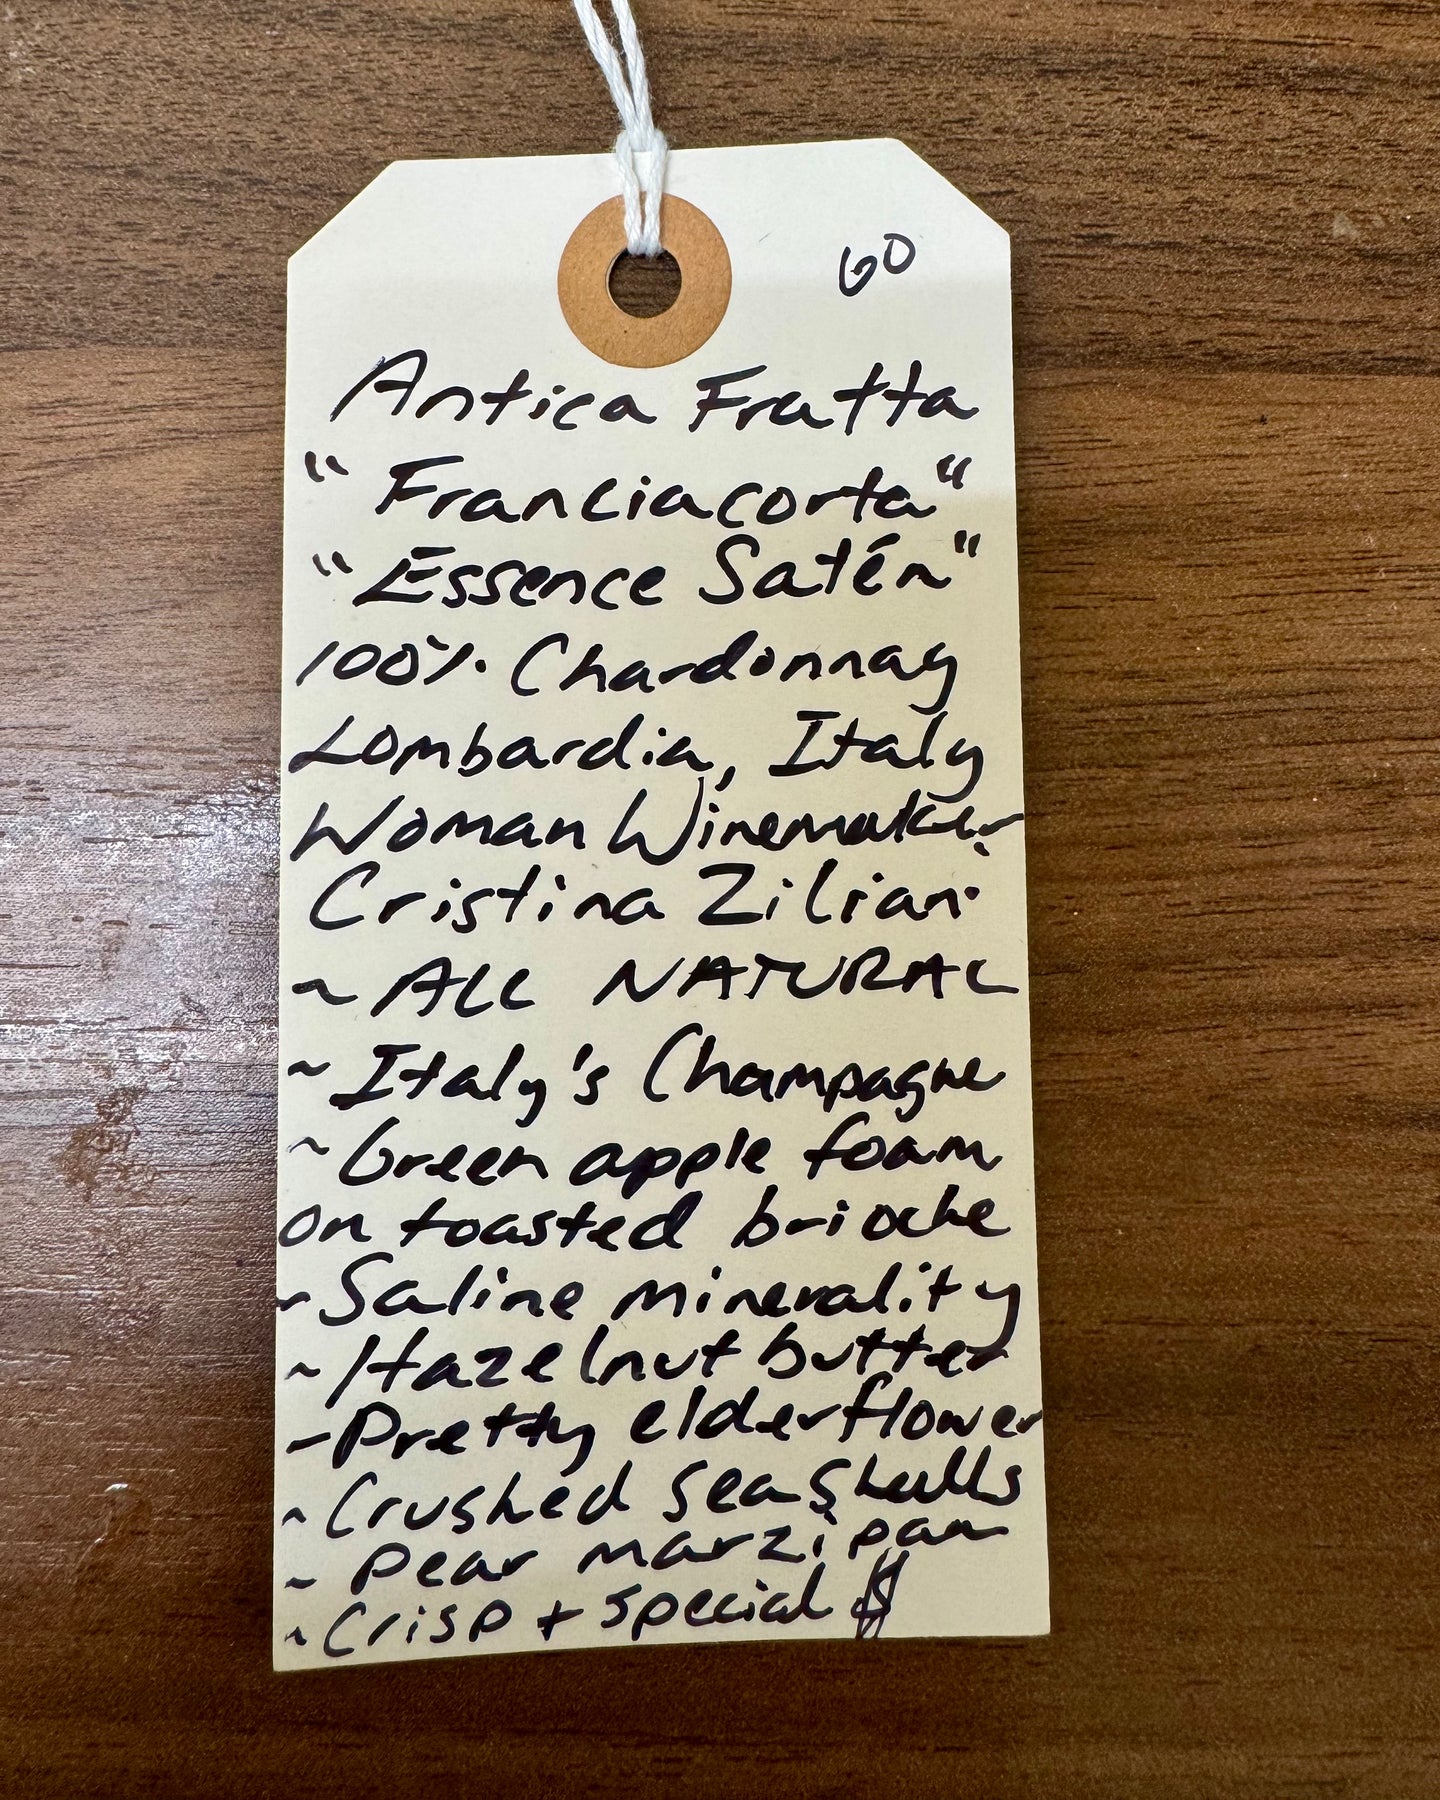 60
Antica Fratta
"Franciacorta"
"Essence Satén"
100% Chardonnay
Lombardia, Italy
Woman Winemaker
Cristina Ziliani
~ ALL NATURAL
~ Italy's Champagne
~ Green apple foam
on toasted brioche
~ Saline minerality
~ Hazelnut butter
~ Pretty elderflower
~ Crushed seashells
~ pear marzipan
~ Crisp + special